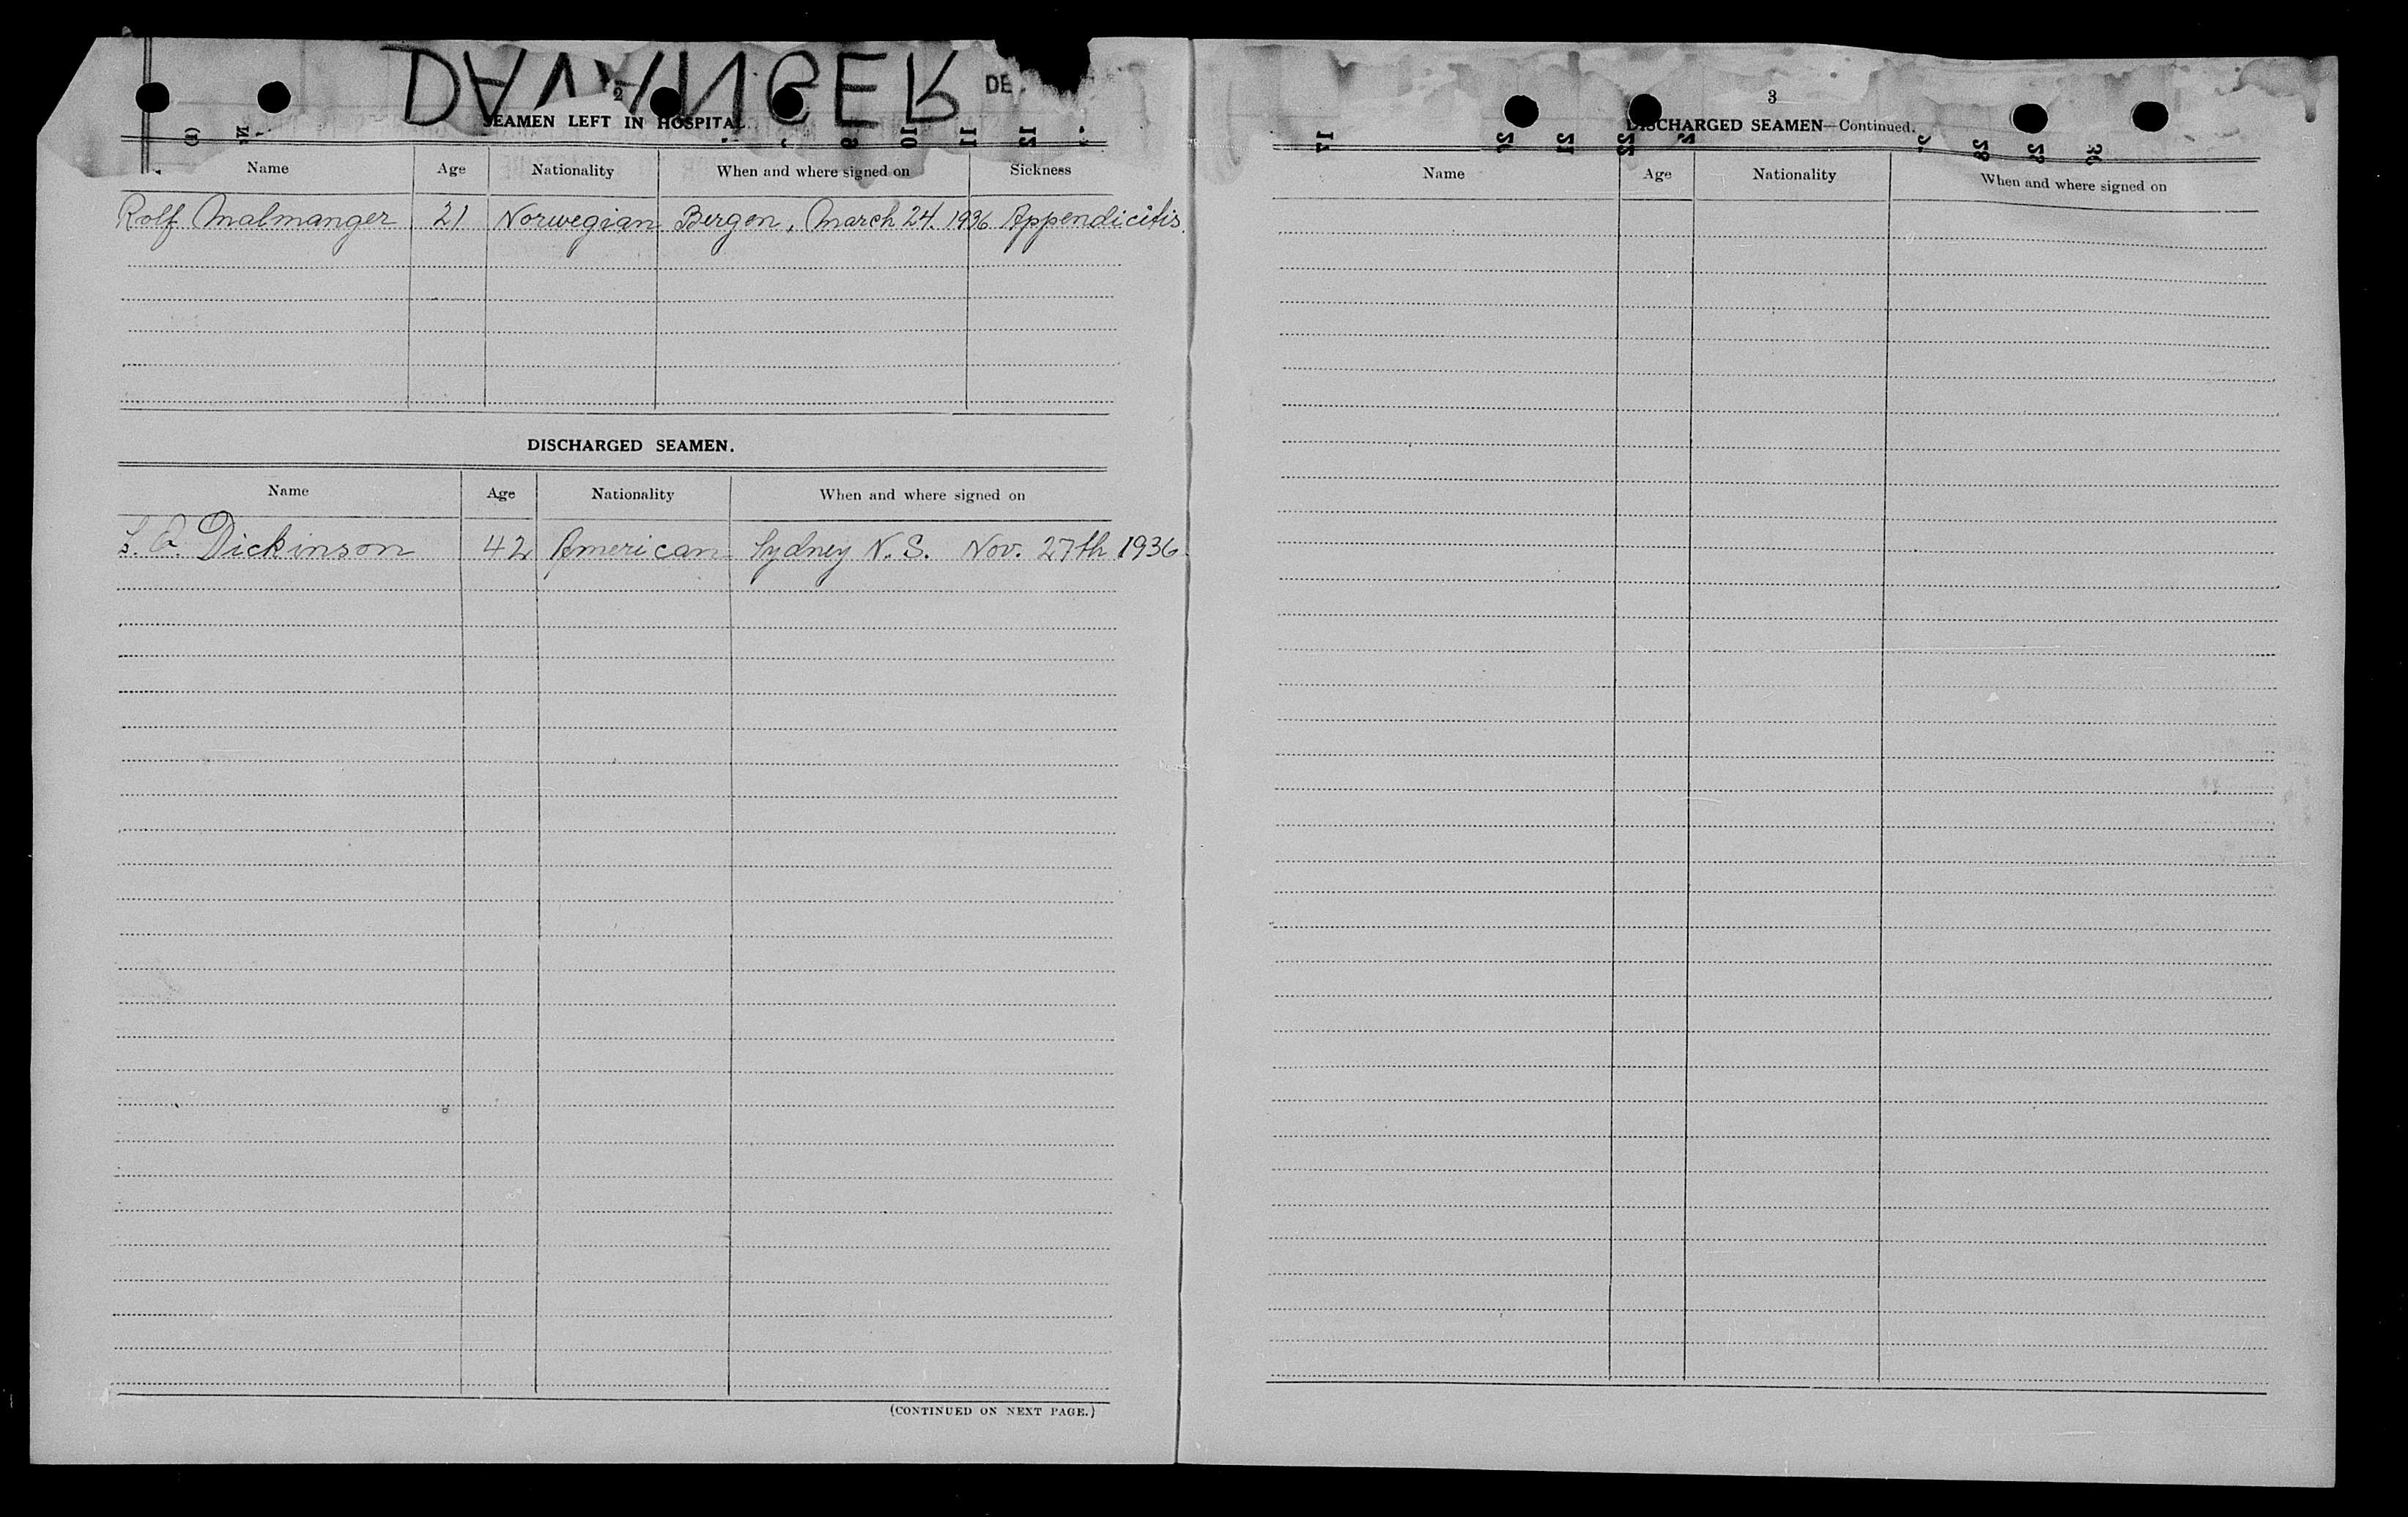 DAVANGER
DE
2
SEAMEN LEFT IN HOSPITAL
Name Age Nationality When and where signed on Sickness
Rolf Malmanger 21 Norwegian Bergen, March 24. 1936 Appendicitis.
DISCHARGED SEAMEN.
Name Age Nationality When and where signed on
Dickinson 42 American Sydney N.S. Nov. 27th 1936
(CONTINUED ON NEXT PAGE.)
3
DISCHARGED SEAMEN—Continued.
Name Age Nationality When and where signed on